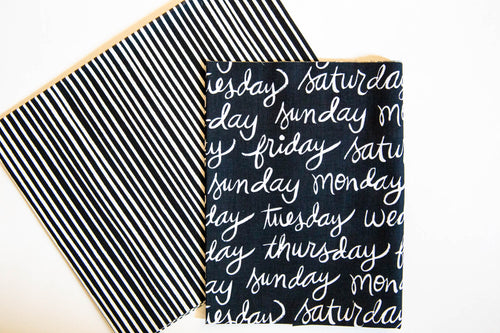 uesday saturday
day sunday mo
y friday satur
sunday monday
day tuesday wed
day thursday f
day sunday mon
tuesday saturday